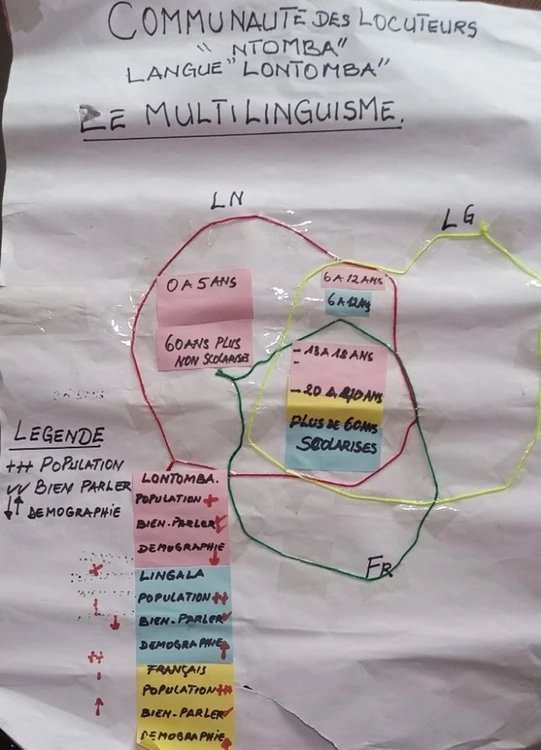 COMMUNAUTÉ DES LOCUTEURS
"NTOMBA"
LANGUE "LONTOMBA"
LE MULTILINGUISME.
LN
LG
0 A 5 ANS
6 A 12 ANS
6 A 12 ANS
60 ANS PLUS
NON SCOLARISES
- 13 A 18 ANS
-
- 20 A ANS
PLUS DE 60 ANS
SCOLARISES
FR
LEGENDE
+++ POPULATION
✓✓ BIEN PARLER
↓↑ DEMOGRAPHIE
LONTOMBA.
POPULATION +
BIEN-PARLER
DEMOGRAPHIE ↓
LINGALA
POPULATION ++
BIEN-PARLER ✓
DEMOGRAPHIE ↑
FRANÇAIS
POPULATION +++
BIEN-PARLER ✓
DEMOGRAPHIE ↑